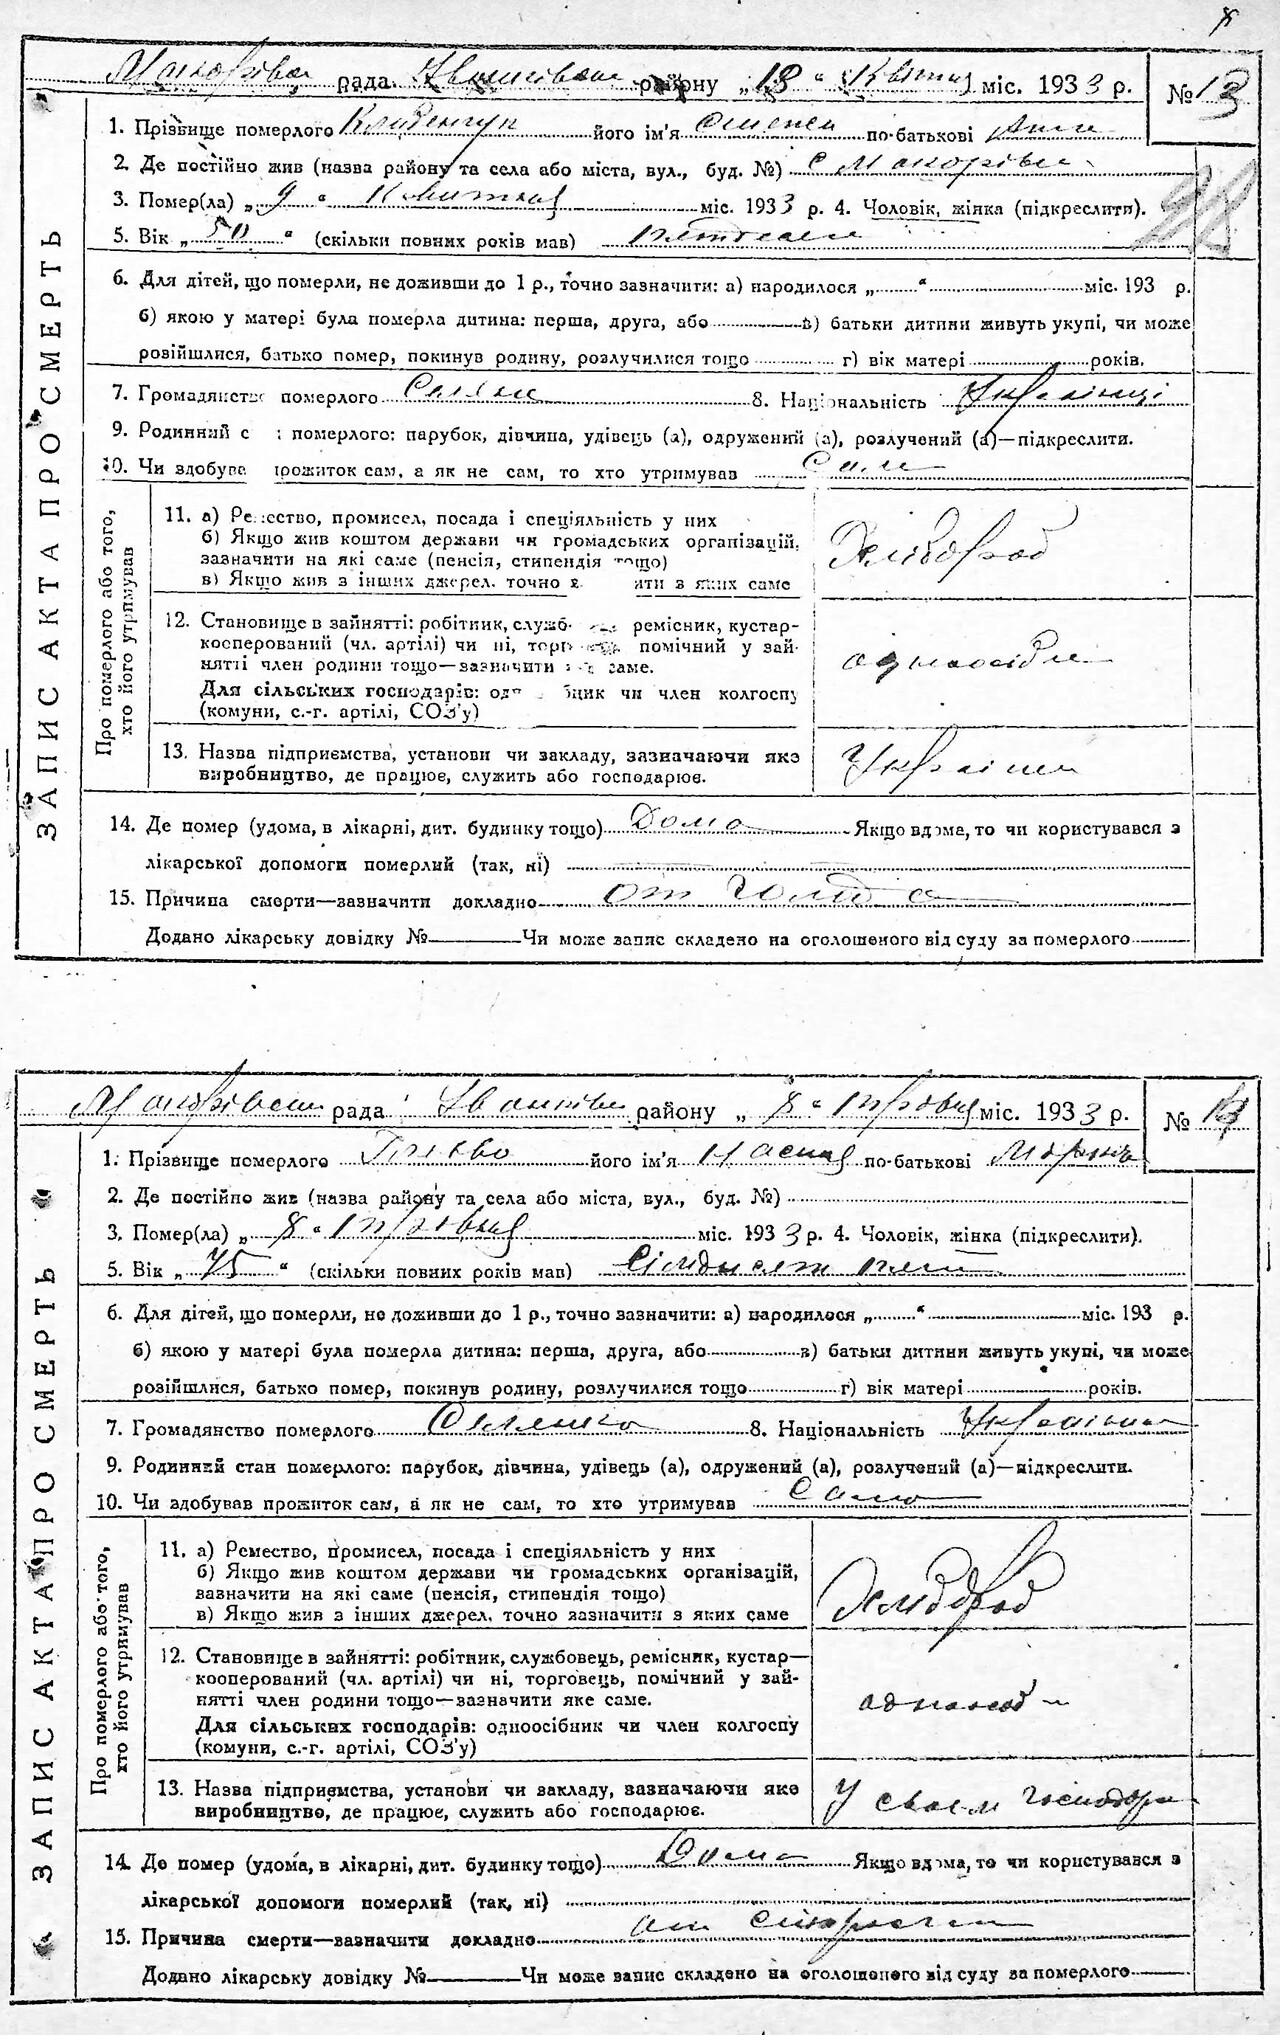 8
Макорівсь рада Іванківськ району „ 13 “ Квітня міс. 1933 р.
№ 13
1. Прізвище померлого його ім'я по-батькові
2. Де постійно жив (назва району та села або міста, вул., буд. №) с Макорівка
3. Помер(ла) „ 9 “ Квитня міс. 1933 р. 4. Чоловік, жінка (підкреслити).
5. Вік „ 50 “ (скільки повних років мав)
6. Для дітей, що померли, не доживши до 1 р., точно зазначити: а) народилося „ “ міс. 193 р.
б) якою у матері була померла дитина: перша, друга, або в) батьки дитини живуть укупі, чи може
розійшлися, батько помер, покинув родину, розлучилися тощо г) вік матері років.
7. Громадянство померлого 8. Національність Україниці
9. Родинний с : померлого: парубок, дівчина, удівець (а), одружений (а), розлучений (а)—підкреслити.
10. Чи здобува прожиток сам, а як не сам, то хто утримував Сам
ЗАПИС АКТА ПРО СМЕРТЬ
Про померлого або того, хто його утримував
11. а) Ре ество, промисел, посада і спеціяльність у них
б) Якщо жив коштом держави чи громадських організацій,
зазначити на які саме (пенсія, стипендія тощо)
в) Якщо жив з інших джерел, точно з ити з яких саме
Хлібороб
12. Становище в зайнятті: робітник, служб ремісник, кустар-
кооперований (чл. артілі) чи ні, торг помічний у зай-
нятті член родини тощо—зазначити саме.
Для сільських господарів: од бник чи член колгоспу
(комуни, с.-г. артілі, СОЗ'у)
13. Назва підприємства, установи чи закладу, зазначаючи яке
виробництво, де працює, служить або господарює.
14. Де помер (удома, в лікарні, дит. будинку тощо) Дома Якщо вдома, то чи користувався з
лікарської допомоги померлий (так, ні)
15. Причина смерти—зазначити докладно от голода
Додано лікарську довідку № Чи може запис складено на оголошеного від суду за померлого
Макорівськ рада Іванківськ району „ 8 “ травня міс. 1933 р.
№ 14
1. Прізвище померлого його ім'я Настя по-батькові
2. Де постійно жив (назва району та села або міста, вул., буд. №)
3. Помер(ла) „ 8 “ травня міс. 1933 р. 4. Чоловік, жінка (підкреслити).
5. Вік „ 75 “ (скільки повних років мав) Сімдисят пять
6. Для дітей, що померли, не доживши до 1 р., точно зазначити: а) народилося „ “ міс. 193 р.
б) якою у матері була померла дитина: перша, друга, або в) батьки дитини живуть укупі, чи може
розійшлися, батько помер, покинув родину, розлучилися тощо г) вік матері років.
7. Громадянство померлого Селянка 8. Національність Українка
9. Родинний стан померлого: парубок, дівчина, удівець (а), одружений (а), розлучений (а)—підкреслити.
10. Чи здобував прожиток сам, а як не сам, то хто утримував Сама
ЗАПИС АКТА ПРО СМЕРТЬ
Про померлого або того, хто його утримував
11. а) Ремество, промисел, посада і спеціяльність у них
б) Якщо жив коштом держави чи громадських організацій,
зазначити на які саме (пенсія, стипендія тощо)
в) Якщо жив з інших джерел, точно зазначити з яких саме
Хлібороб
12. Становище в зайнятті: робітник, службовець, ремісник, кустар—
кооперований (чл. артілі) чи ні, торговець, помічний у зай-
нятті член родини тощо—зазначити яке саме.
Для сільських господарів: одноосібник чи член колгоспу
(комуни, с.-г. артілі, СОЗ'у)
13. Назва підприємства, установи чи закладу, зазначаючи яке
виробництво, де працює, служить або господарює.
У своем господар
14. Де помер (удома, в лікарні, дит. будинку тощо) Дома Якщо вдома, то чи користувався з
лікарської допомоги померлий (так, ні)
15. Причина смерти—зазначити докладно от старости
Додано лікарську довідку № Чи може запис складено на оголошеного від суду за померлого